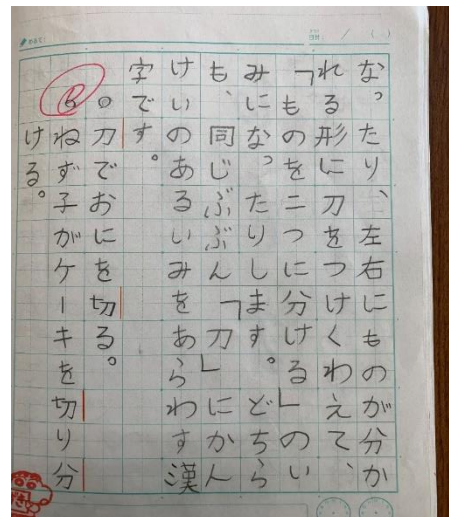 なったり、左右にものが分か
れる形に刀をつけくわえて、
「ものを二つに分ける」のい
みになったりします。どちら
も、同じぶぶん「刀」にかん
けいのあるいみをあらわす漢
字です。
〇刀でおにを切る。
ねず子がケーキを切り分
ける。